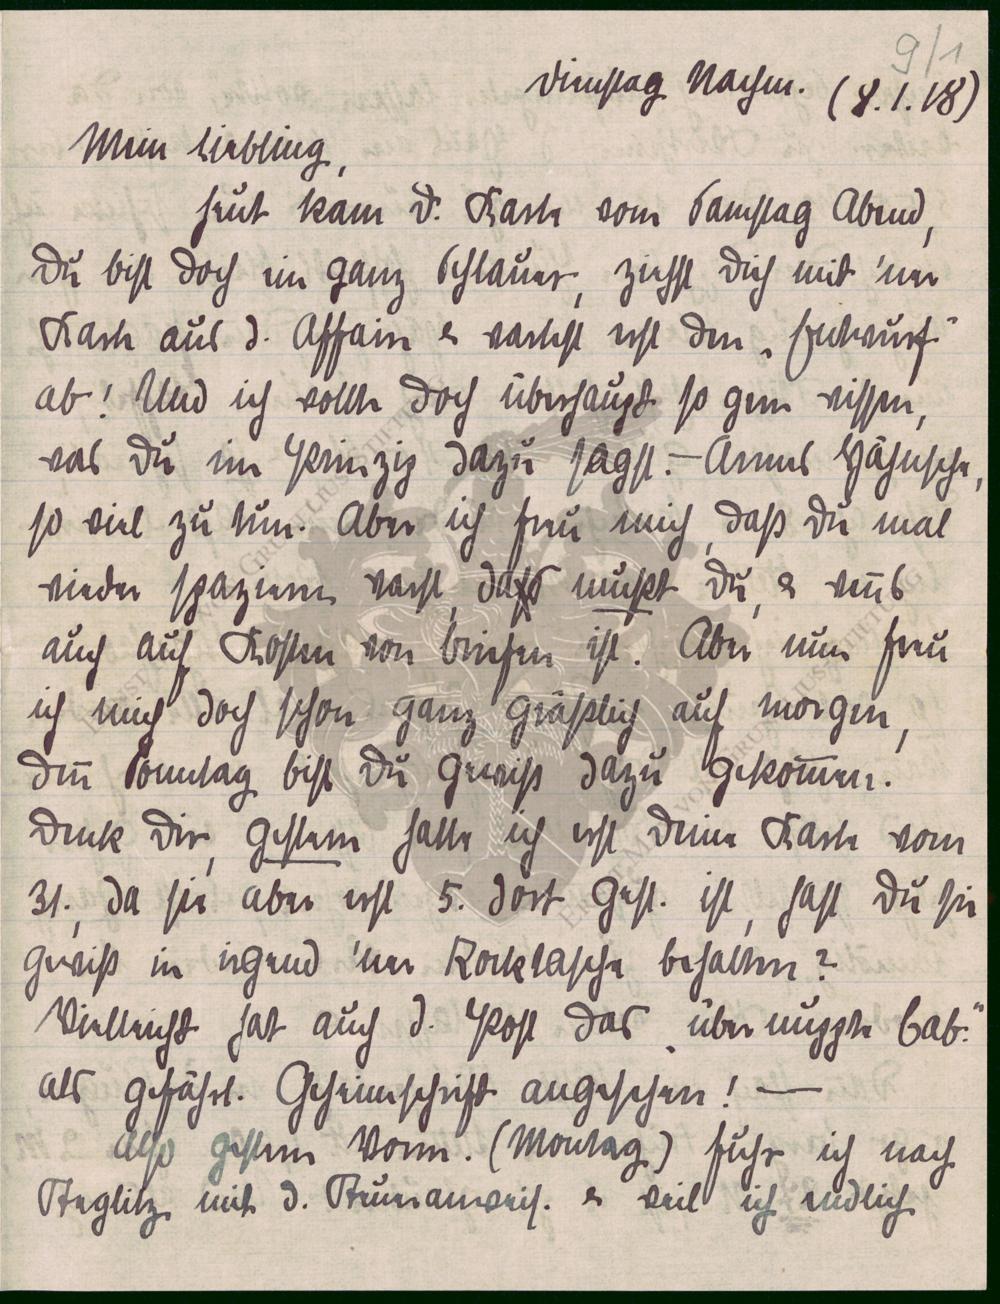 9/1
Dienstag Nachm. (8.1.18)
Mein Liebling,
heut kam d. Karte vom Samstag Abend,
Du bist doch ein ganz Schlauer, ziehst Dich mit 'ner
Karte aus d. Affaire & wartest erst den „Entwurf"
ab! Und ich wollte doch überhaupt so gern wissen,
was Du im Prinzip dazu sagst. – Armes Hähnsche,
so viel zu tun. Aber ich freu mich, daß Du mal
wieder spazieren warst, das mußt Du, & wenns
auch auf Kosten von Briefen ist. Aber nun freu
ich mich doch schon ganz gräßlich auf morgen,
denn Sonntag bist Du gewiß dazu gekommen.
Denk Dir, gestern hatte ich erst Deine Karte vom
31., da sie aber erst 5. dort gest. ist, hast Du sie
gewiß in irgend 'ner Rocktasche behalten?
Vielleicht hat auch d. Post das „über
als gefährl. Geheimschrift angesehen! —
Also gestern Vorm. (Montag) fuhr ich nach
Steglitz mit d. Steueranweis. & weil ich endlich